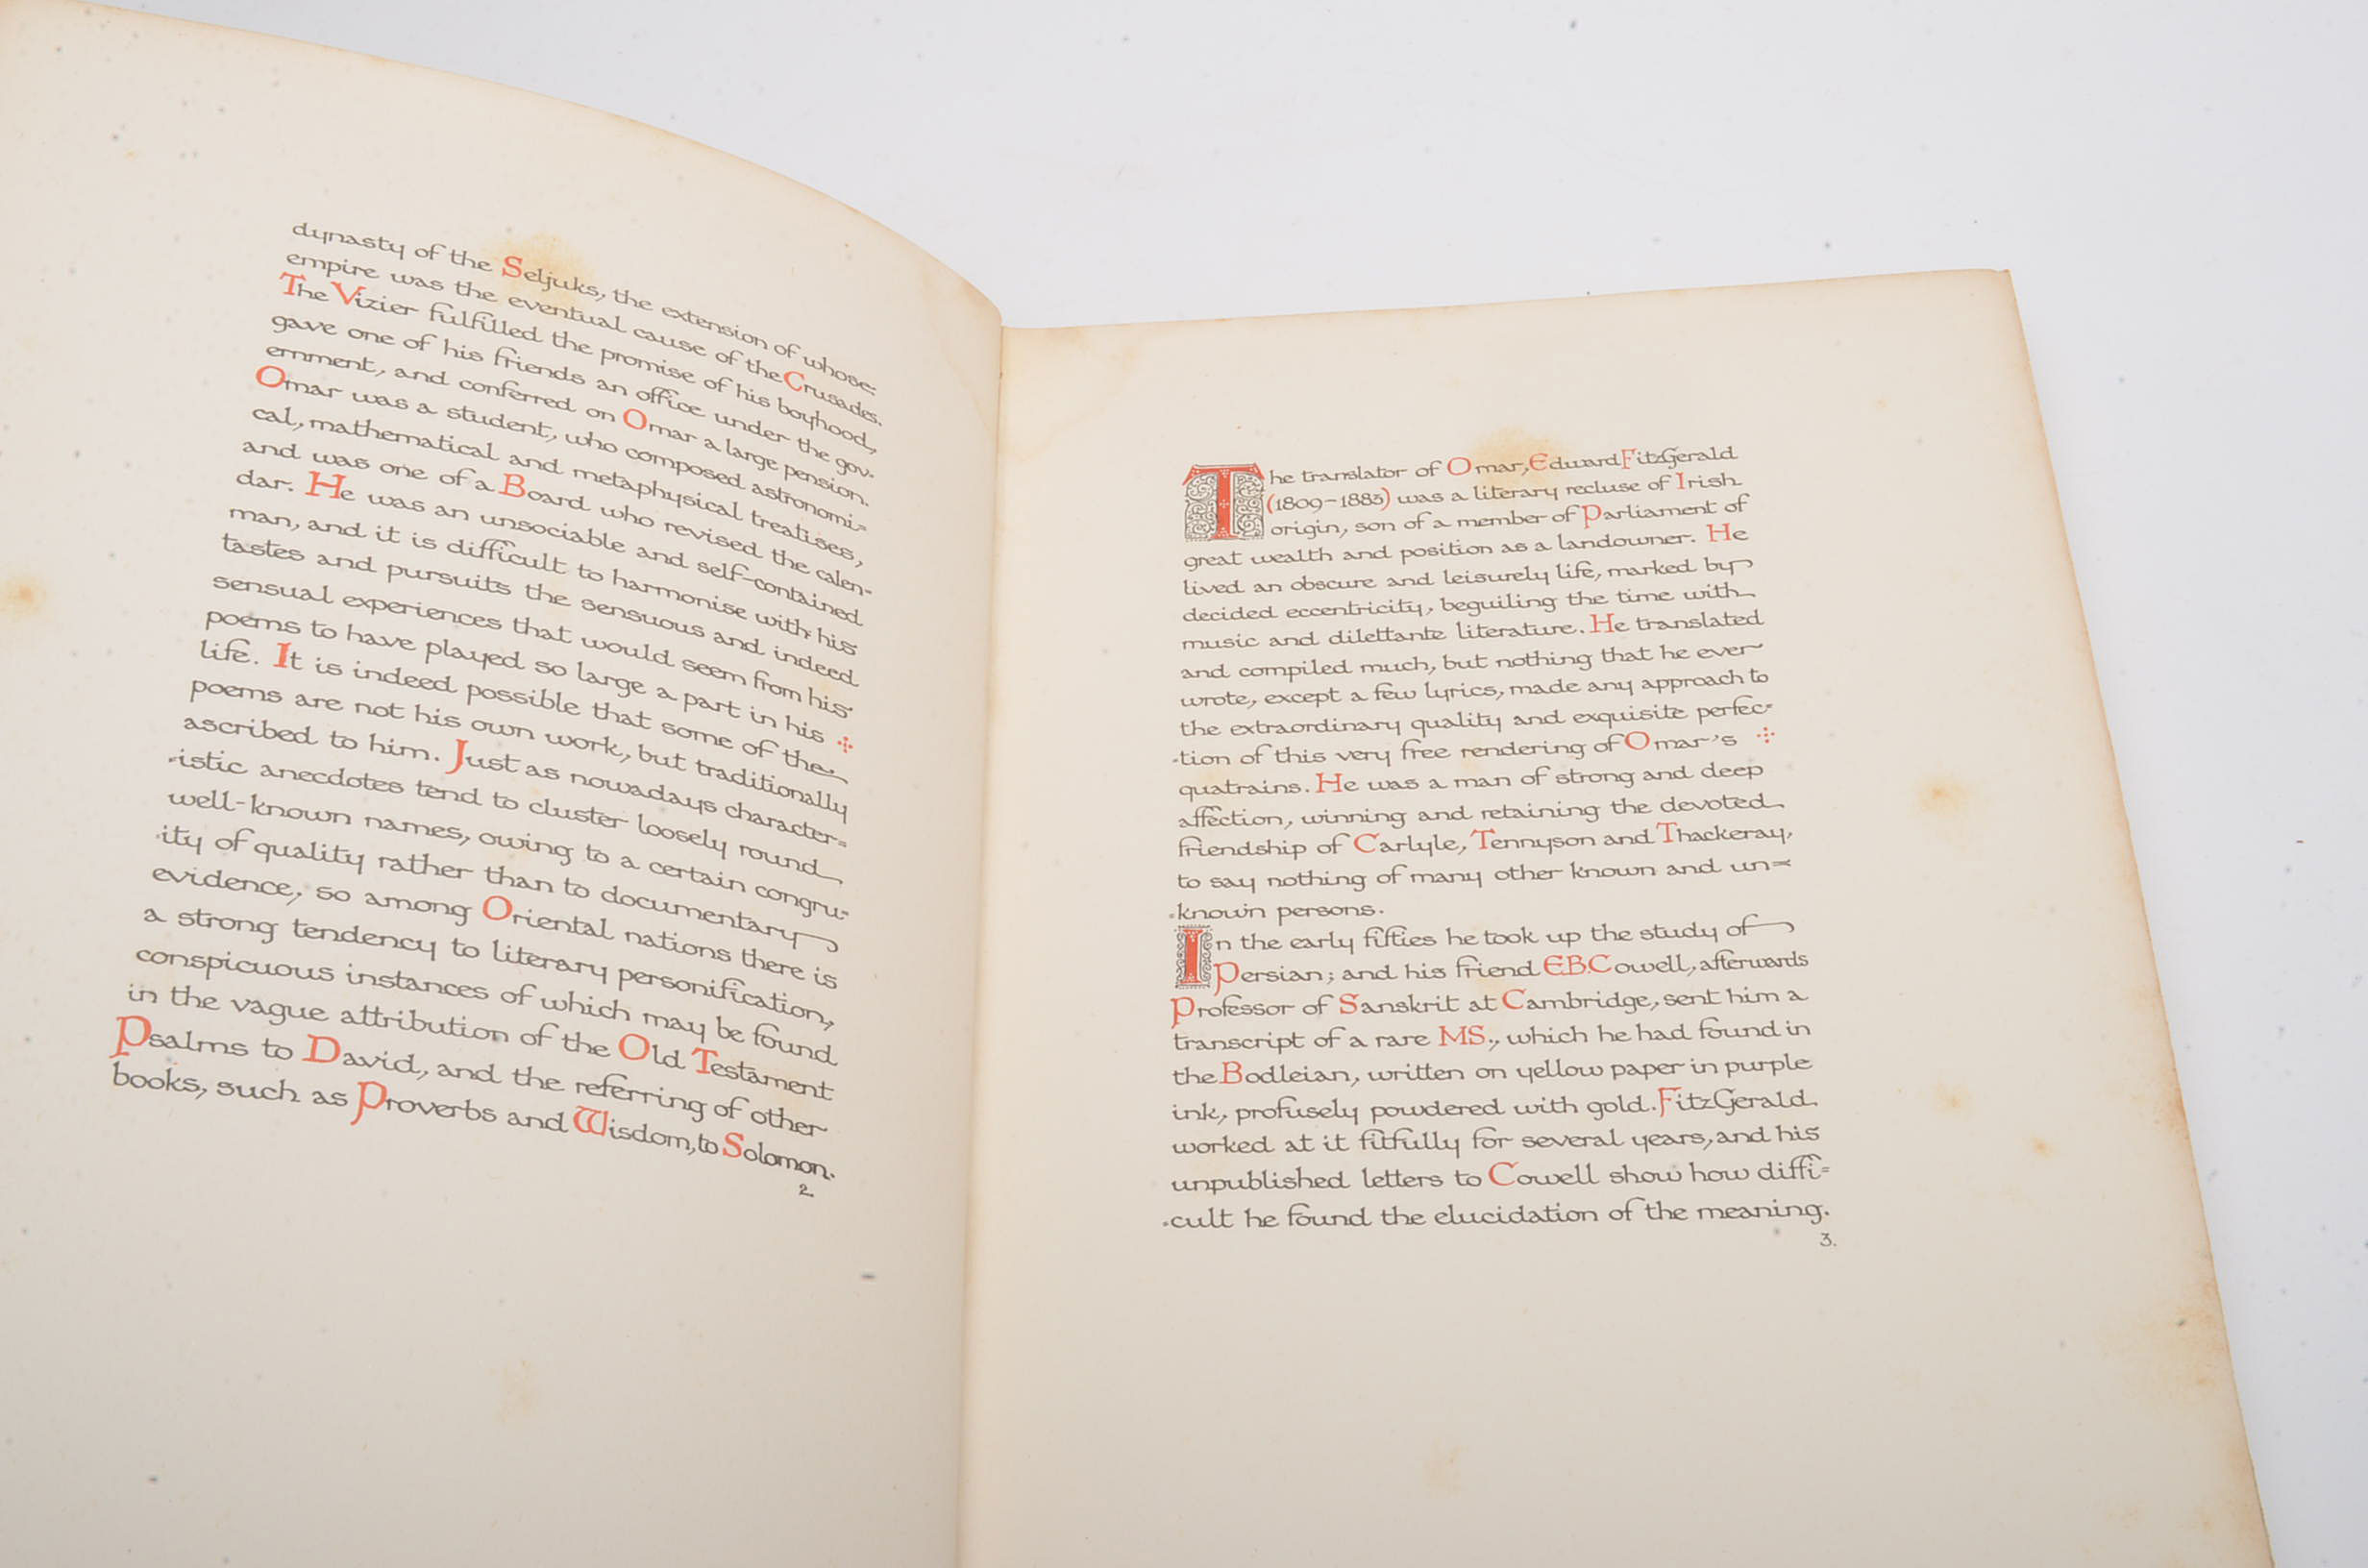 dynasty of the Seljuks, the extension of whose
empire was the eventual cause of the Crusades.
The Vizier fulfilled the promise of his boyhood,
gave one of his friends an office under the gov-
ernment, and conferred on Omar a large pension.
Omar was a student, who composed astronomi=
cal, mathematical and metaphysical treatises,
and was one of a Board who revised the calen=
dar. He was an unsociable and self-contained
man, and it is difficult to harmonise with his
tastes and pursuits the sensuous and indeed
sensual experiences that would seem from his
poems to have played so large a part in his
life. It is indeed possible that some of the
poems are not his own work, but traditionally
ascribed to him. Just as nowadays character=
istic anecdotes tend to cluster loosely round
well-known names, owing to a certain congru=
ity of quality rather than to documentary
evidence, so among Oriental nations there is
a strong tendency to literary personification,
conspicuous instances of which may be found
in the vague attribution of the Old Testament
Psalms to David, and the referring of other
books, such as Proverbs and Wisdom, to Solomon.
2.
The translator of Omar, Edward FitzGerald
(1809-1883) was a literary recluse of Irish
origin, son of a member of Parliament of
great wealth and position as a landowner. He
lived an obscure and leisurely life, marked by
decided eccentricity, beguiling the time with
music and dilettante literature. He translated
and compiled much, but nothing that he ever
wrote, except a few lyrics, made any approach to
the extraordinary quality and exquisite perfec=
tion of this very free rendering of Omar's
quatrains. He was a man of strong and deep
affection, winning and retaining the devoted
friendship of Carlyle, Tennyson and Thackeray,
to say nothing of many other known and un=
known persons.
In the early fifties he took up the study of
Persian; and his friend E.B. Cowell, afterwards
Professor of Sanskrit at Cambridge, sent him a
transcript of a rare MS., which he had found in
the Bodleian, written on yellow paper in purple
ink, profusely powdered with gold. FitzGerald
worked at it fitfully for several years, and his
unpublished letters to Cowell show how diffi=
cult he found the elucidation of the meaning.
3.